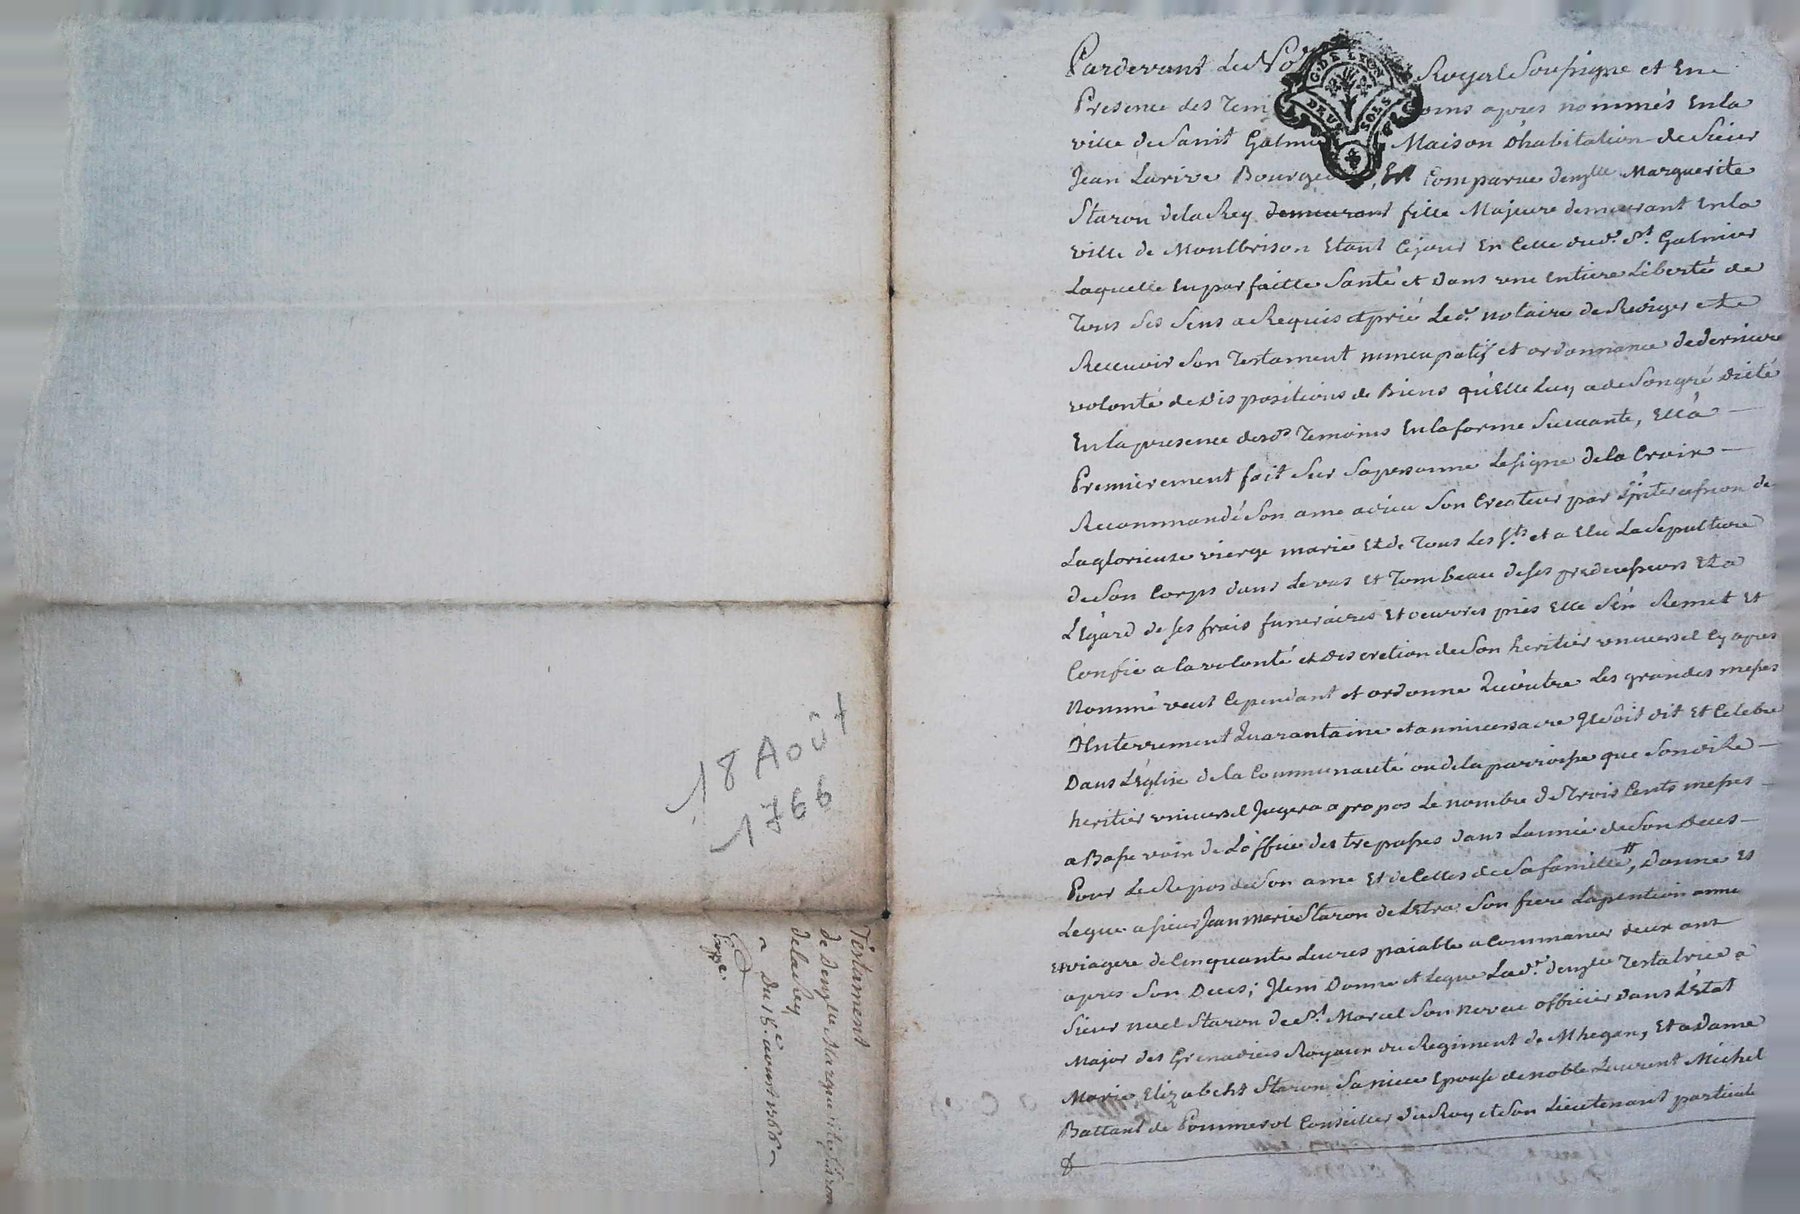 18 Août
1766
Testament
de demlle Marguerite Staron
delaRey
Du 18e aoust 1766
Expe.
G. DE LYON
DEUX SOLS
Pardevant Le No Royal Soussigne et En
Presence des Tem oins apres nommés Enla
ville de Saint Galmier Maison d'habitation de Sieur
Jean Larive Bourgeois, Est Comparue demlle Marguerite
Staron delaRey demeurant fille Majeure demeurant Enla
ville de Montbrison Etant Cejour En Celle dud. St Galmier
Laquelle En parfaitte Santé et dans une Entiere Liberté de
Tous Ses Sens a Requis et prié Led. notaire de Rediger et de
Recevoir Son Testament nuncupatif et ordonnance de derniere
volonté de dispositions de Biens qu'Elle Luy a de Songré dicté
En la presence desds Temoins En la forme Suivante, Ell'a
Premierement fait Sur Sa personne Le signe de la Croix
Recommandé Son ame a dieu Son Createur par L'intercession de
La glorieuse vierge marie Et de Tous Les Sts et a Elu La Sepulture
de Son Corps dans Le vas Et Tombeau de ses predecesseurs Et a
L'Egard de ses frais funeraires Et oeuvres pies Elle S'en Remet Et
Confie a la volonté et discretion de Son heritier universel Cy apres
Nommé veut Cependant et ordonne Qu'outre Les grandes messes
d'Enterrement Quarantaine et anniversaire Il Soit dit Et Celebré
Dans L'Eglise de la Communauté ou de la parroisse que Sondit
heritier universel Jugera a propos Le nombre de Trois Cents messes
a Basse voix de L'office des trepassés dans L'année de Son deces
Pour Le Repos de Son ame Et de Celles de Sa famille, Donne Et
Legue a sieur Jean Marie Staron de Son frere La pention annu
Et viagere de Cinquante Livres paiable a Commancer deux ans
apres Son Deces; Item Donne et Legue Lad. demlle Testatrice a
Sieur Staron de St Marcel Son neveu officier dans L'Etat
Major des Grenadiers Royaux du Regiment de Mhegan, Et a dame
Marie Elizabeht Staron Sa niece Epouse de noble Laurent Michel
Battant de Pommerol Conseiller du Roy et Son Lieutenant particulie